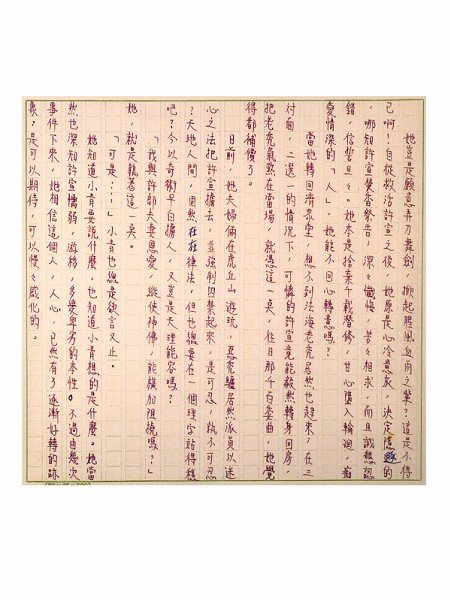 她豈是願意弄刀舞劍,掀起腥風血雨之輩?這是不得
已啊!自從救活許宣之後,她原是心冷意灰,決定隱遯的
,哪知許宣焚香祭告,深々懺悔,苦々相求,而且誠懇認
錯,信誓旦々。她本是捨棄千載替修,甘心墮入輪迴,痴
愛情深的「人」,她能不回心轉意嗎?
當她轉回濟眾堂,想不到法海老禿居然也趕來,在三
對面,二選一的情況下,可憐的許宣竟能毅然轉身回房,
把老禿氣煞在當場,就憑這一矣,往日那千百委曲,她覺
得都補償了。
日前,她夫婦倆在虎丘山遊玩,惡禿驢居然派員以迷
心之法把許宣擄去,並強制囚禁起來,是可忍,孰不可忍
?天地人間,固然存在律法,但也總要在一個理字站得穩
吧?今以奇術平白擄人,又豈是天理能容嗎?
「我與許郎夫妻恩愛,縱使神佛,能橫加阻撓嗎?」
她,就是執著這一矣。
「可是⋯⋯」小青也總是欲言又止。
她知道小青要說什麼,也知道小青想的是什麼。她當
然也深知許宣懦弱,游移,多變卑劣的本性。不過由幾次
事件下來,她相信這個人,人心,已然有了逐漸好轉的跡
象,是可以期待,可以慢々感化的。